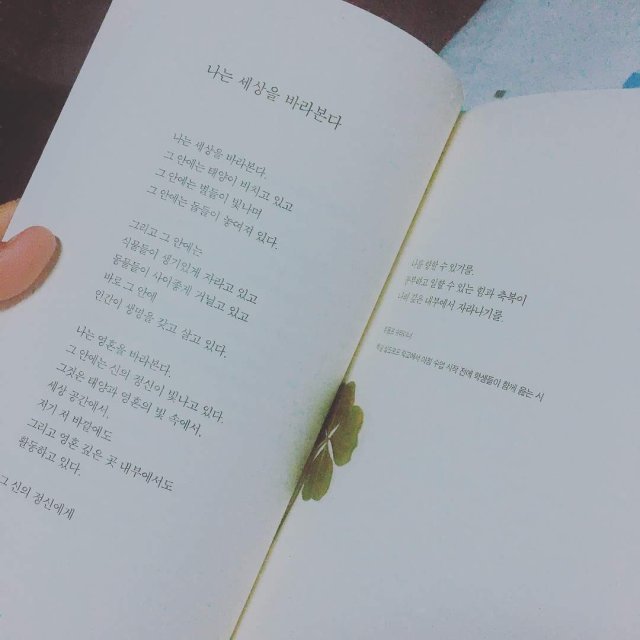 나는 세상을 바라본다
나는 세상을 바라본다.
그 안에는 태양이 비치고 있고
그 안에는 별들이 빛나며
그 안에는 돌들이 놓여져 있다.
그리고 그 안에는
식물들이 생기있게 자라고 있고
동물들이 사이좋게 거닐고 있고
바로 그 안에
인간이 생명을 갖고 살고 있다.
나는 영혼을 바라본다.
그 안에는 신의 정신이 빛나고 있다.
그것은 태양과 영혼의 빛 속에서,
세상 공간에서,
저기 저 바깥에도
그리고 영혼 깊은 곳 내부에서도
활동하고 있다.
그 신의 정신에게
나를 향할 수 있기를.
공부하고 일할 수 있는 힘과 축복이
나의 깊은 내부에서 자라나기를.
학교에서 아침 수업 시작 전에 학생들이 함께 읊는 시